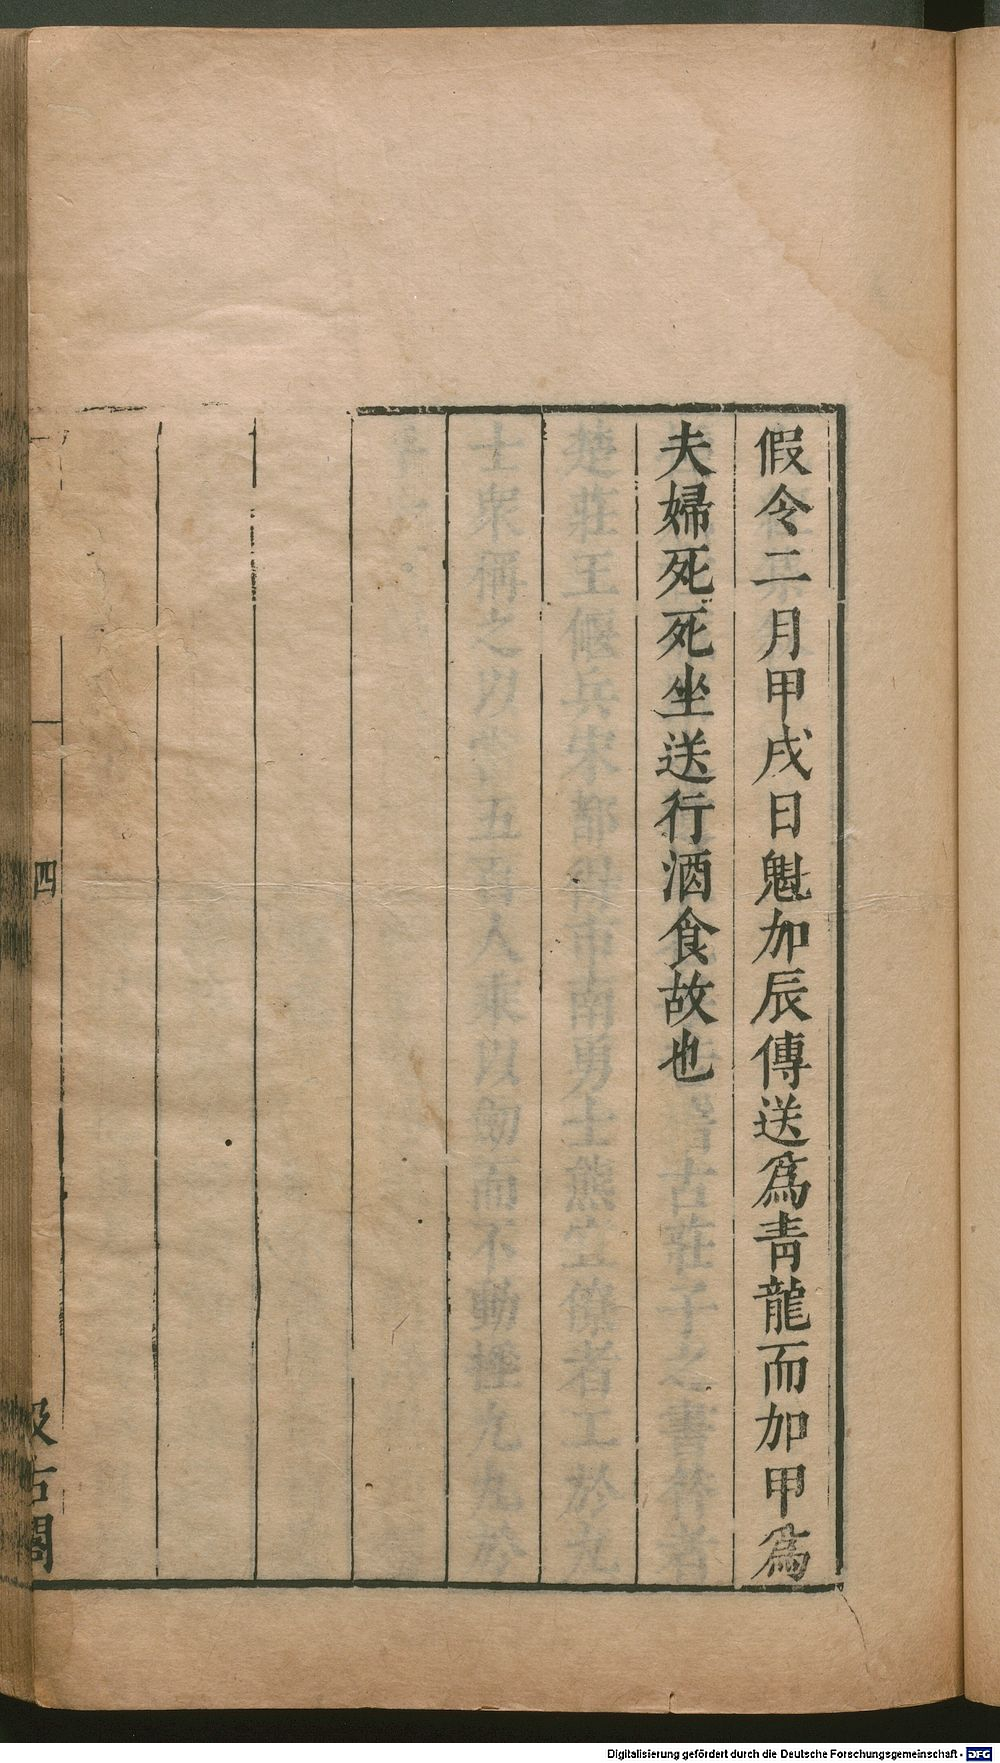 假令二月甲戌日魁加辰傳送爲青龍而加甲爲
夫婦死死坐送行酒食故也
四
汲古閣
Digitalisierung gefördert durch die Deutsche Forschungsgemeinschaft - DFG